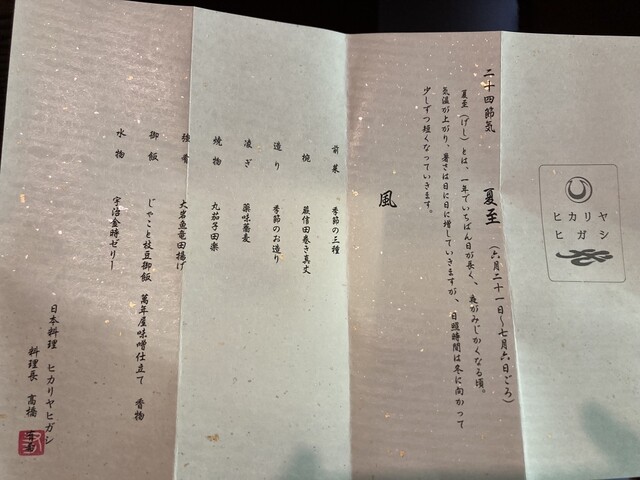 ヒカリヤ
ヒガシ
二十四節気　夏至　（六月二十一日～七月六日ごろ）
夏至（げし）とは、一年でいちばん日が長く、夜がみじかくなる頃。
気温が上がり、暑さは日に日に増していきますが、日照時間は冬に向かって
少しずつ短くなっていきます。
風
前菜　季節の三種
椀　蕨信田巻き真丈
造り　季節のお造り
凌ぎ　薬味蕎麦
焼物　丸茄子田楽
強肴　大岩魚竜田揚げ
御飯　じゃこと枝豆御飯　萬年屋味噌仕立て　香物
水物　宇治金時ゼリー
日本料理　ヒカリヤヒガシ
料理長　高橋